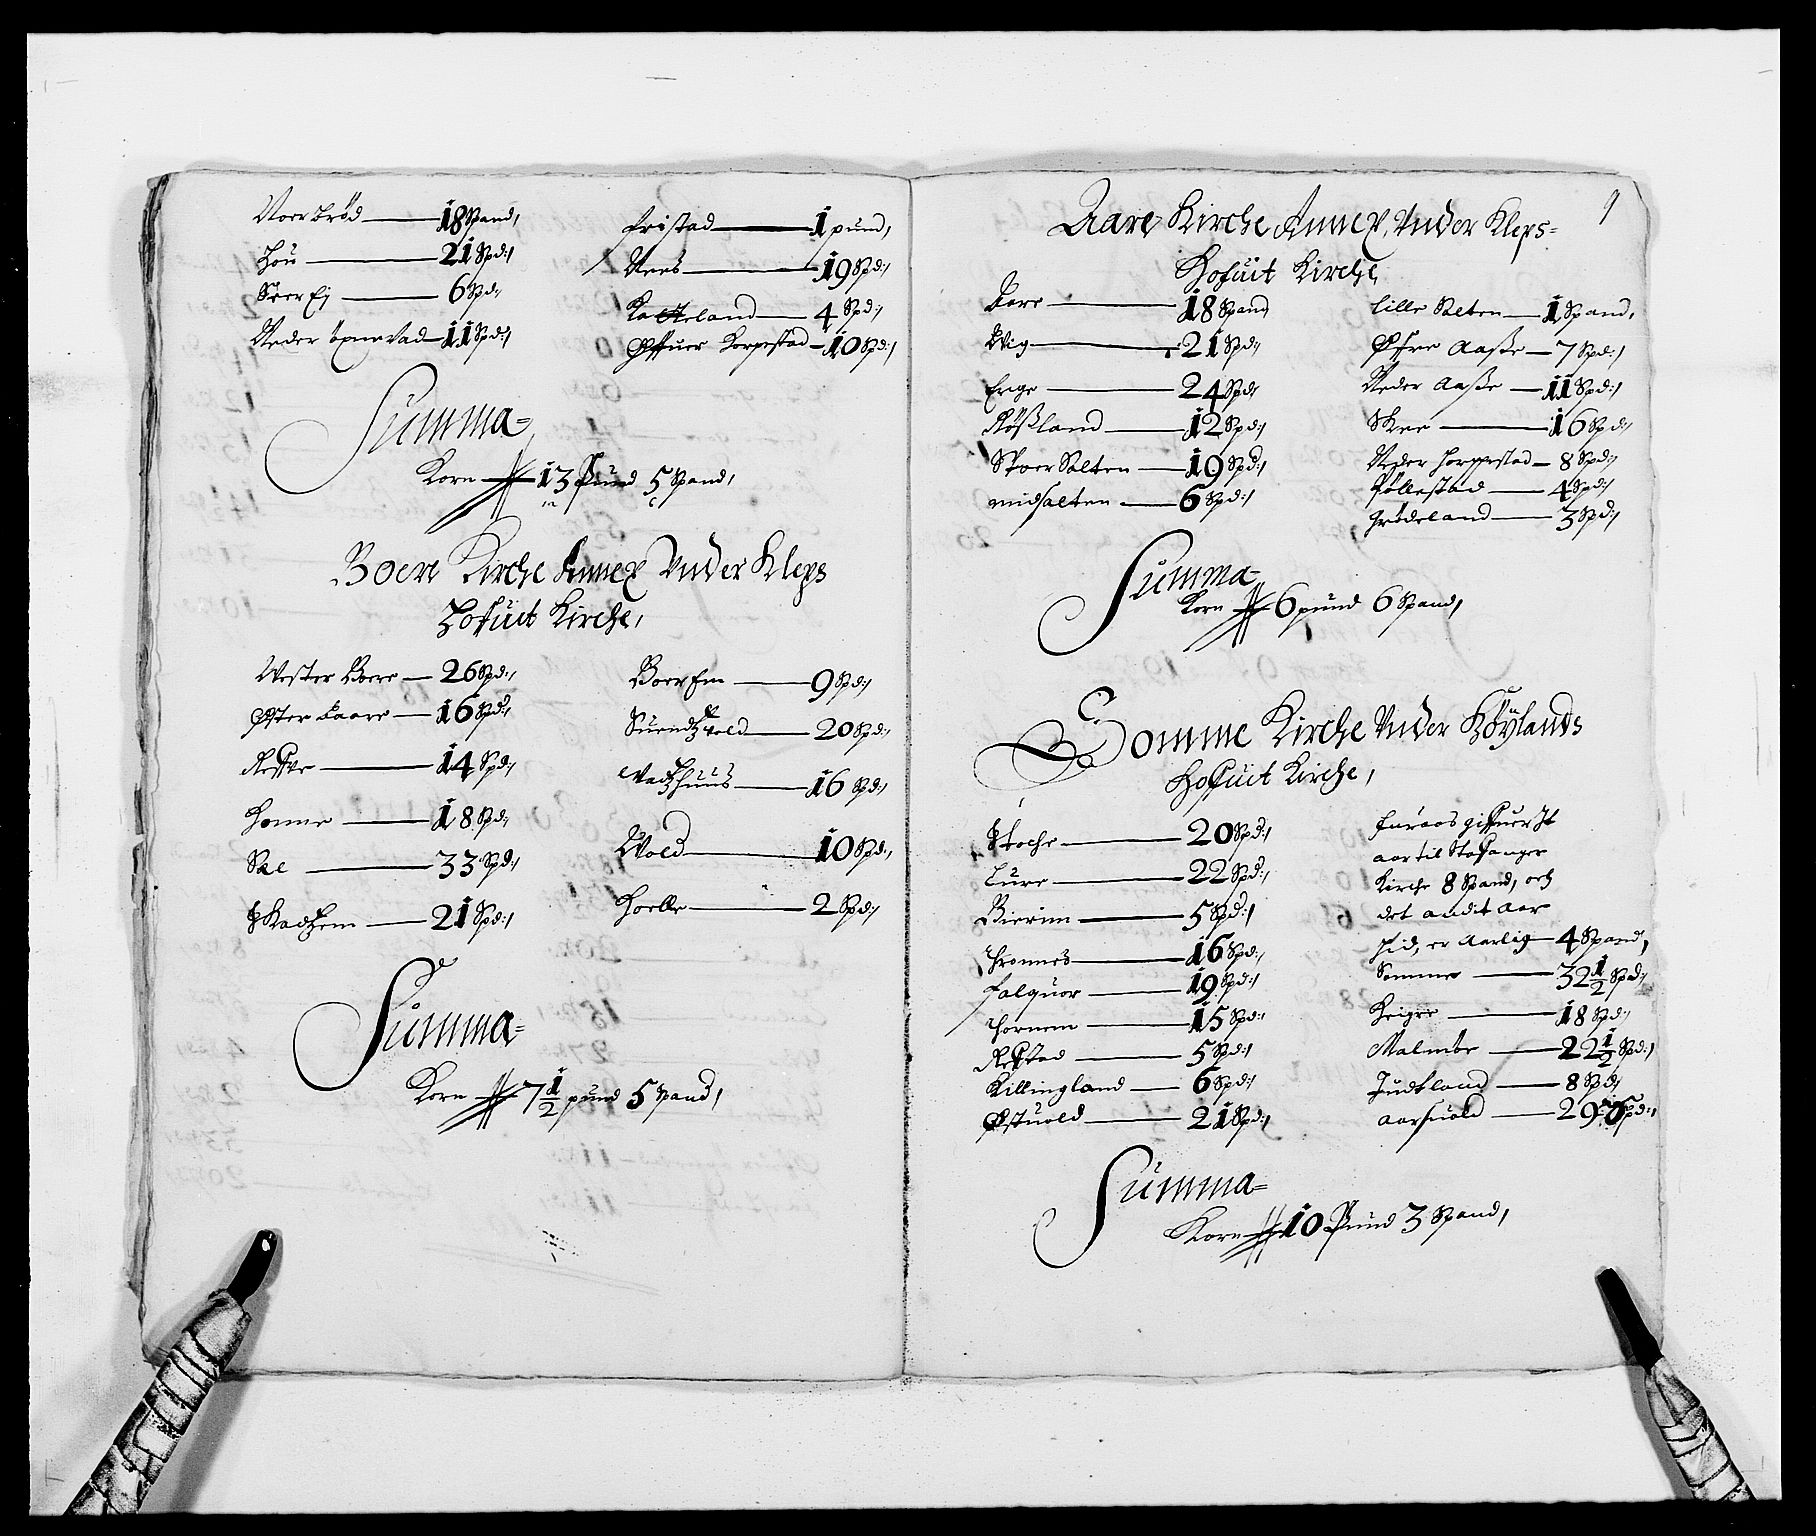 Noerbrød — 18 Spand,
Hou — 21 Spd:,
Neder øxnevad — 11 Spd:,
fristad — 1 pund,
Nees — 19 Spd:,
Katteland — 4 Spd:,
Øffuer Horpestad — 10 Spd:,
Summa
Korn 13 Pund 5 Spand,
Boere Kirche Annex Vnder Kleps
Hofuit Kirche,
Wester Boere — 26 Spd:,
Øster Baare — 16 Spd:,
Refve — 14 Spd:,
Homme — 18 Spd:,
Sele — 33 Spd:,
Skadzem — 21 Spd:,
9 Spd:,
20 Spd:,
Vadzhuus — 16 Spd:,
Wold — 10 Spd:,
Hoelle — 2 Spd:,
Summa
Korn 7 1/2 pund 5 Spand,
9
Aare Kirche Annex, Vnder Kleps
Hofuit Kirche,
Aare — 18 Spand
Wig — 21 Spd:
Enge — 24 Spd:
Røßland — 12 Spd:,
Stoer Salten — 19 Spd:,
midsalten — 6 Spd:,
Lille Salten — 1 Spand,
Øfre Aaße — 7 Spd:,
Neder Aaße — 11 Spd:,
Skee — 16 Spd:,
Neder Horpestad — 8 Spd:,
Føllestad — 4 Spd:,
Grødeland — 3 Spd:,
Summa
Korn 6 pund 6 Spand,
Somme Kirche Vnder Høÿlands
Hofuit Kirche,
Stoche — 20 Spd:,
Lure — 22 Spd:,
Bierim — 5 Spd:,
Thronnes — 16 Spd:,
folquor — 19 Spd:,
Hornem — 15 Spd:,
Refstad — 5 Spd:,
Killingland — 6 Spd:,
Østuold — 21 Spd:,
giffuer It
aar til Stafanger
Kirche 8 Spand, och
det andit aar
Jid, er aarlig 4 Spand,
Somme — 32 1/2 Spd:,
Heigre — 18 Spd:,
Malmbe — 22 1/2 Spd:,
Judtland — 8 Spd
aarsuold — 29 Spd:,
Summa
Korn 10 Pund 3 Spand,